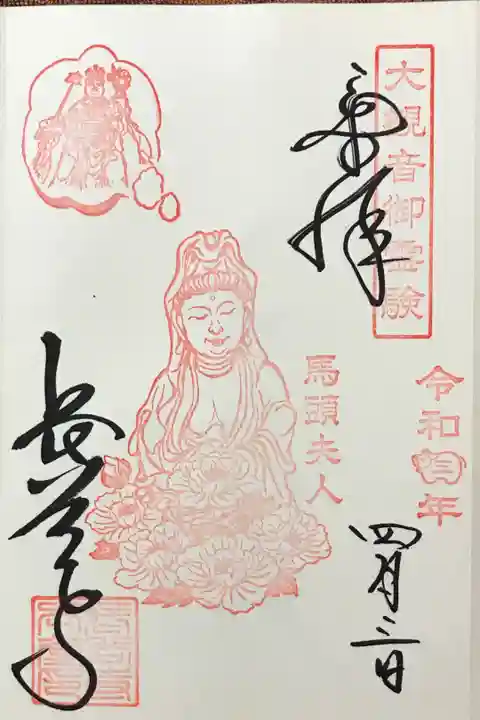 大観音御霊験
奉拝
令和年
四月三日
馬頭夫人
長谷寺